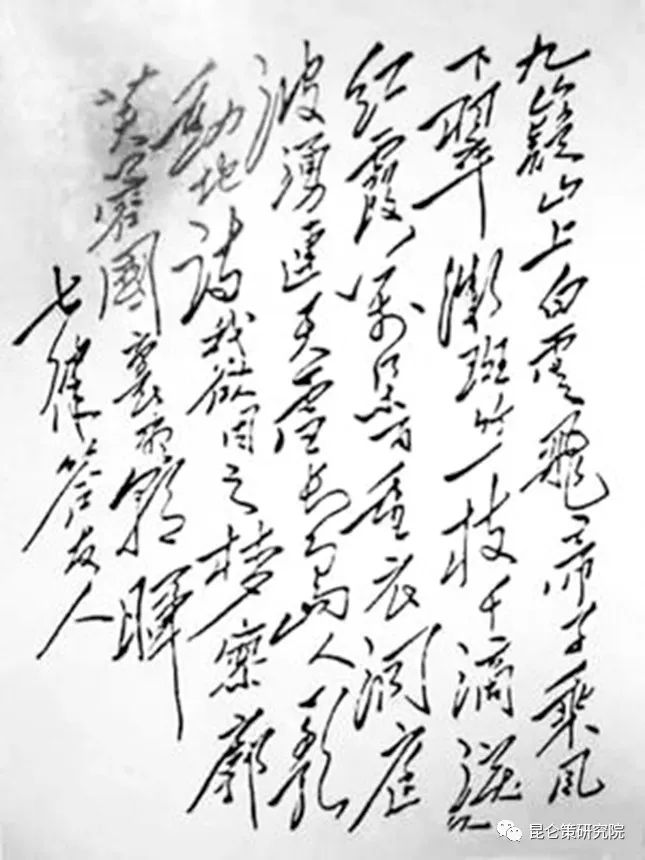 九嶷山上白雲飛帝子乘風
下翠微斑竹一枝千滴淚
紅霞萬朵百重衣洞庭
波湧連天雪長島人歌
動地詩我欲因之梦寥廓
芙蓉國裏盡朝暉
七律答友人
昆仑策研究院